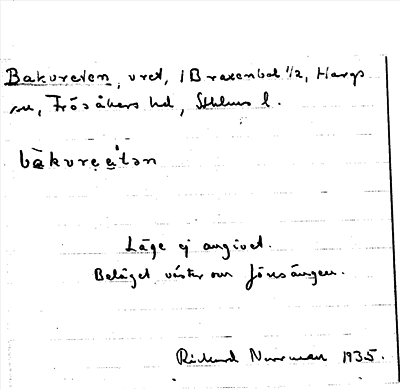 Bakvreten, vret, i Braxenbol 1/2, Hargs
sn, Frösåkers hd, Sthlms l.
bàkvre̥e̥'tən
Läge ej angivet.
Beläget väster om Jönsängen.
Rickard Norrman 1935.